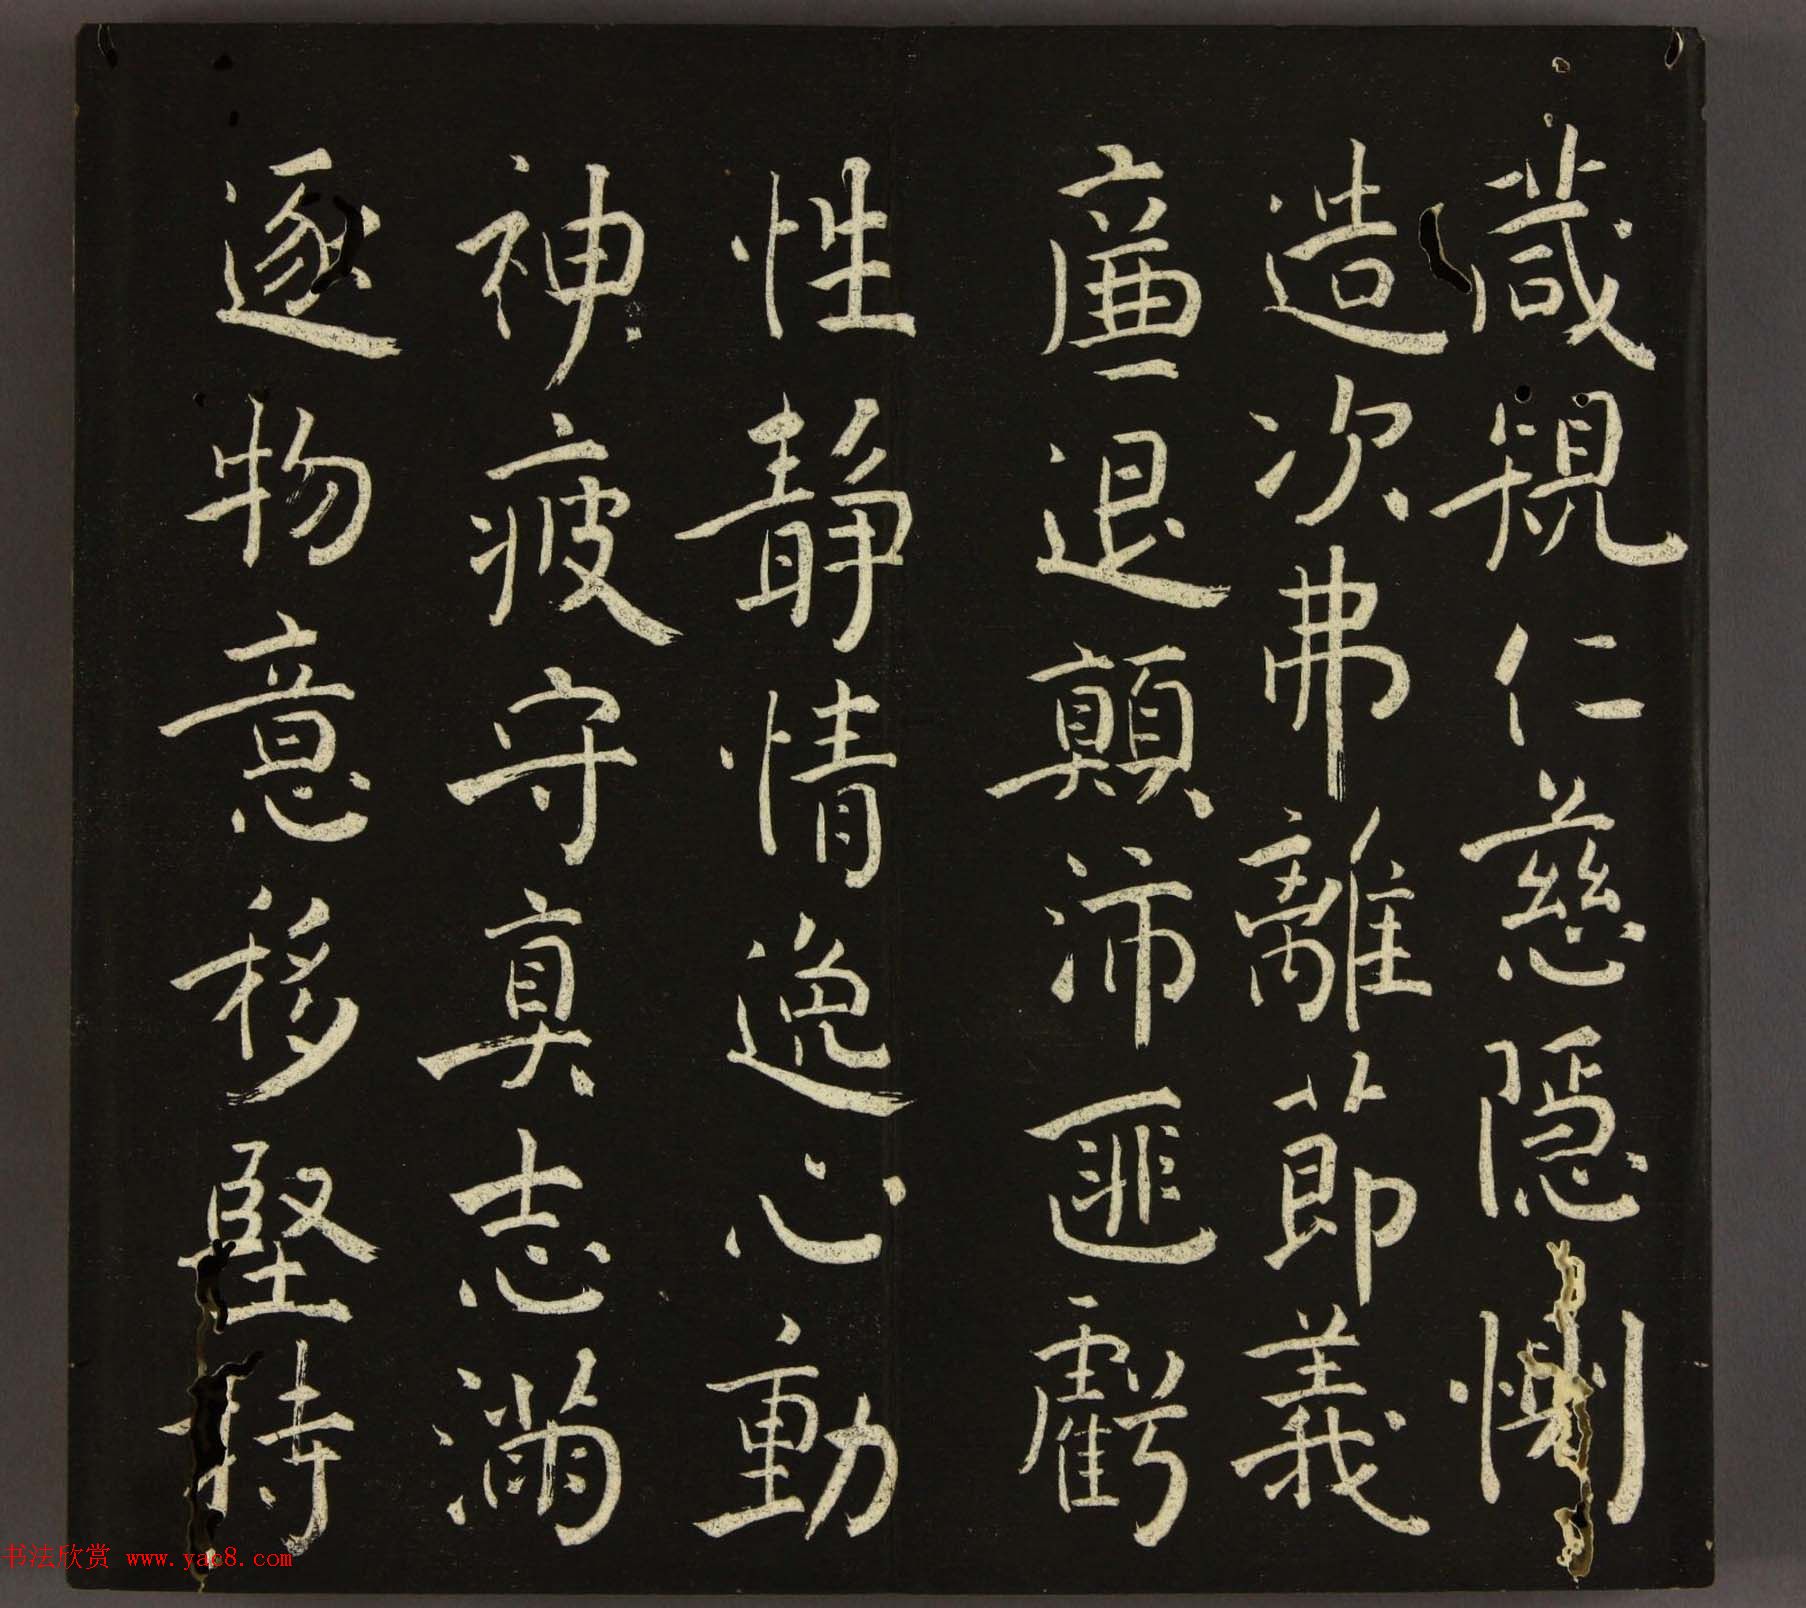 箴規仁慈隱惻
造次弗離節義
廉退顛沛匪虧
性靜情逸心動
神疲守真志滿
逐物意移堅持
书法欣赏 www.yac8.com